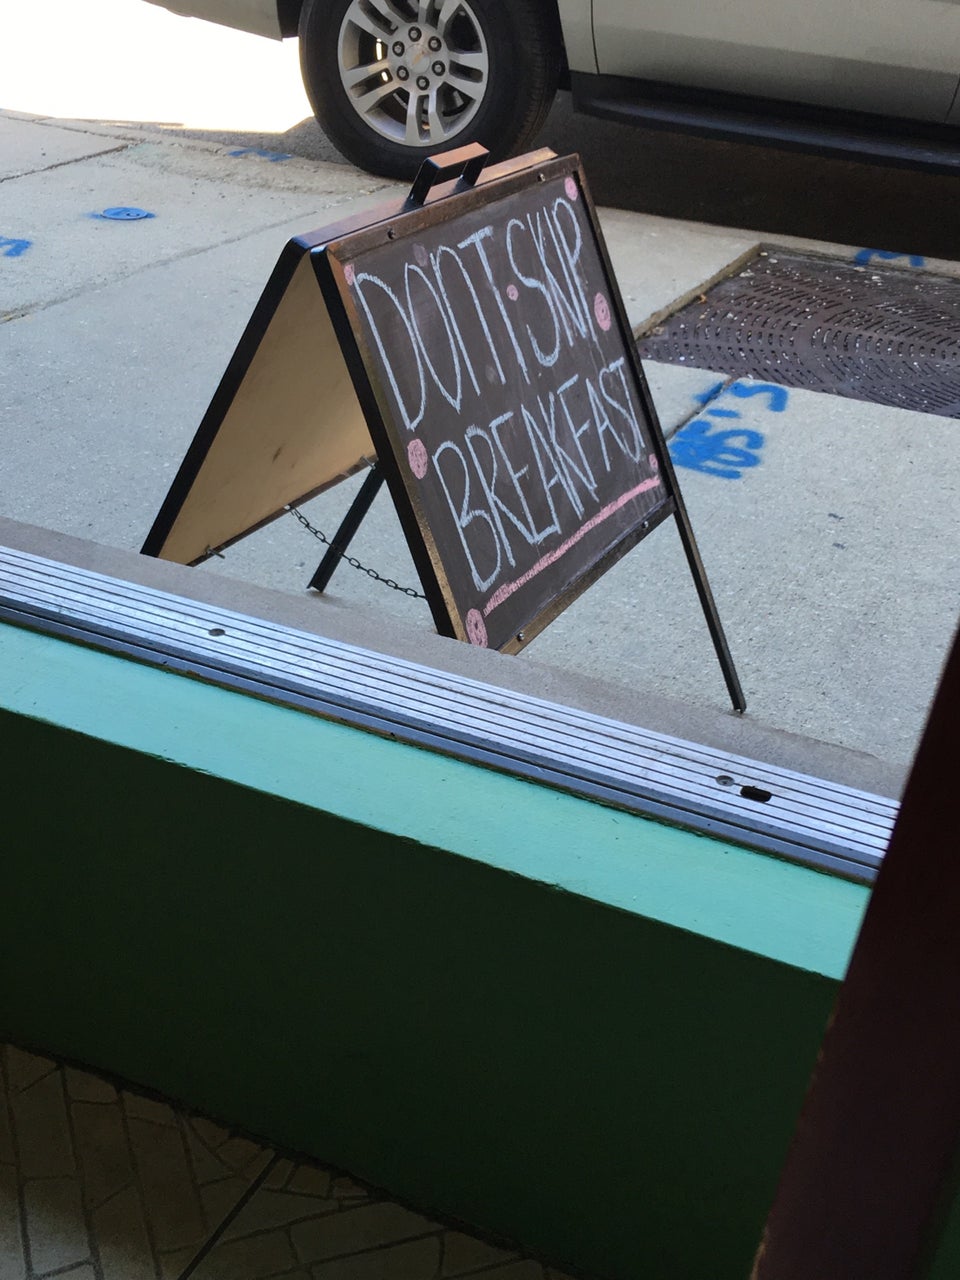 DON'T SKIP
BREAKFAST